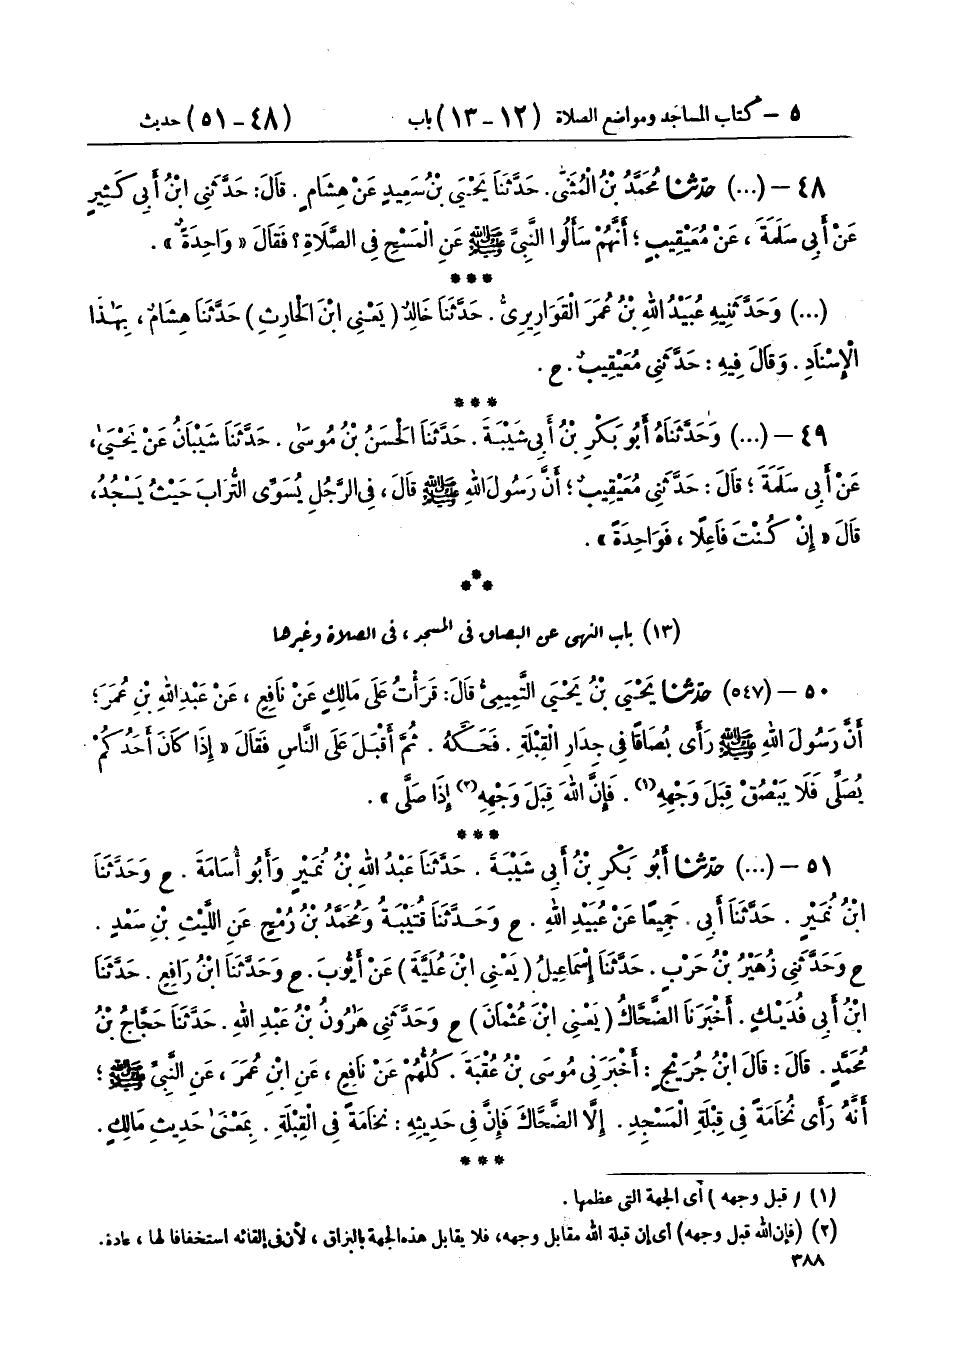 ٥ – كتاب المساجد ومواضع الصلاة (١٢ – ١٣) باب (٤٨ – ٥١) حديث
٤٨ – (...) حَدَّثَنَا مُحَمَّدُ بْنُ الْمُثَنَّى. حَدَّثَنَا يَحْيَى بْنُ سَعِيدٍ عَنْ هِشَامٍ. قَالَ: حَدَّثَنِي ابْنُ أَبِي كَثِيرٍ
عَنْ أَبِي سَلَمَةَ، عَنْ مُعَيْقِيبٍ؛ أَنَّهُمْ سَأَلُوا النَّبِيَّ ﷺ عَنِ الْمَسْحِ فِي الصَّلَاةِ؟ فَقَالَ « وَاحِدَةً » .
***
(...) وَحَدَّثَنِيهِ عُبَيْدُ اللهِ بْنُ عُمَرَ الْقَوَارِيرِيُّ. حَدَّثَنَا خَالِدٌ ( يَعْنِي ابْنَ الْحَارِثِ ) حَدَّثَنَا هِشَامٌ، بِهَٰذَا
الْإِسْنَادِ. وَقَالَ فِيهِ: حَدَّثَنِي مُعَيْقِيبٌ. ح .
***
٤٩ – (...) وَحَدَّثَنَاهُ أَبُو بَكْرِ بْنُ أَبِي شَيْبَةَ. حَدَّثَنَا الْحَسَنُ بْنُ مُوسَىٰ. حَدَّثَنَا شَيْبَانُ عَنْ يَحْيَىٰ،
عَنْ أَبِي سَلَمَةَ؛ قَالَ: حَدَّثَنِي مُعَيْقِيبٌ؛ أَنَّ رَسُولَ اللهِ ﷺ قَالَ، فِي الرَّجُلِ يُسَوِّي التُّرَابَ حَيْثُ يَسْجُدُ،
قَالَ « إِنْ كُنْتَ فَاعِلًا، فَوَاحِدَةً » .
***
(١٣) باب النهى عن البصاق فى المسجد، فى الصلاة وغيرها
٥٠ – (٥٤٧) حَدَّثَنَا يَحْيَىٰ بْنُ يَحْيَى التَّمِيمِيُّ قَالَ: قَرَأْتُ عَلَى مَالِكٍ عَنْ نَافِعٍ، عَنْ عَبْدِ اللهِ بْنِ عُمَرَ؛
أَنَّ رَسُولَ اللهِ ﷺ رَأَى بُصَاقًا فِي جِدَارِ الْقِبْلَةِ. فَحَكَّهُ. ثُمَّ أَقْبَلَ عَلَى النَّاسِ فَقَالَ « إِذَا كَانَ أَحَدُكُمْ
يُصَلِّي فَلَا يَبْصُقْ قِبَلَ وَجْهِهِ(١). فَإِنَّ اللهَ قِبَلَ وَجْهِهِ(٢) إِذَا صَلَّى » .
***
٥١ – (...) حَدَّثَنَا أَبُو بَكْرِ بْنُ أَبِي شَيْبَةَ. حَدَّثَنَا عَبْدُ اللهِ بْنُ نُمَيْرٍ وَأَبُو أُسَامَةَ. ح وَحَدَّثَنَا
ابْنُ نُمَيْرٍ. حَدَّثَنَا أَبِي. جَمِيعًا عَنْ عُبَيْدِ اللهِ. ح وَحَدَّثَنَا قُتَيْبَةُ وَمُحَمَّدُ بْنُ رُمْحٍ عَنِ اللَّيْثِ بْنِ سَعْدٍ.
ح وَحَدَّثَنِي زُهَيْرُ بْنُ حَرْبٍ. حَدَّثَنَا إِسْمَاعِيلُ ( يَعْنِي ابْنَ عُلَيَّةَ ) عَنْ أَيُّوبَ. ح وَحَدَّثَنَا ابْنُ رَافِعٍ. حَدَّثَنَا
ابْنُ أَبِي فُدَيْكٍ. أَخْبَرَنَا الضَّحَّاكُ ( يَعْنِي ابْنَ عُثْمَانَ ) ح وَحَدَّثَنِي هَارُونُ بْنُ عَبْدِ اللهِ. حَدَّثَنَا حَجَّاجُ بْنُ
مُحَمَّدٍ. قَالَ: قَالَ ابْنُ جُرَيْجٍ: أَخْبَرَنِي مُوسَى بْنُ عُقْبَةَ. كُلُّهُمْ عَنْ نَافِعٍ، عَنِ ابْنِ عُمَرَ، عَنِ النَّبِيِّ ﷺ؛
أَنَّهُ رَأَى نُخَامَةً فِي قِبْلَةِ الْمَسْجِدِ. إِلَّا الضَّحَّاكَ فَإِنَّ فِي حَدِيثِهِ: نُخَامَةً فِي الْقِبْلَةِ. بِمَعْنَىٰ حَدِيثِ مَالِكٍ.
***
(١) ( قبل وجهه ) أى الجهة التى عظمها .
(٢) (فإن الله قبل وجهه) أى إن قبلة الله مقابل وجهه، فلا يقابل هذه الجهة بالبزاق، لأن فى إلقائه استخفافا لها، عادة.
٣٨٨